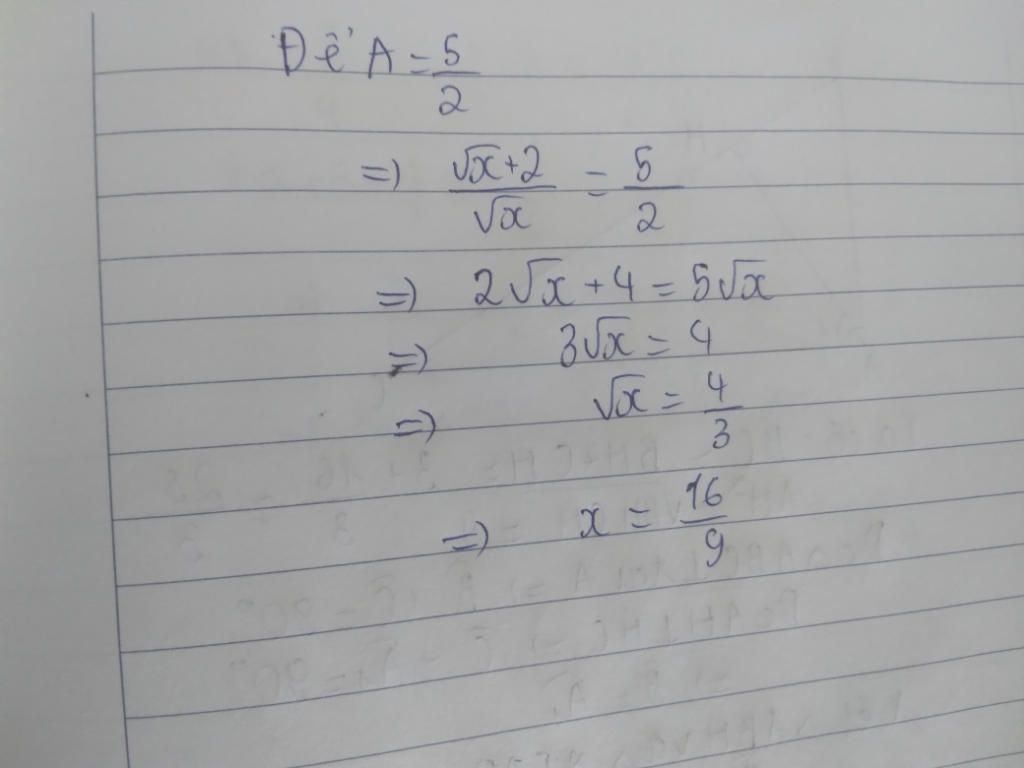 Để A = 5/2
=> (√x+2)/√x = 5/2
=> 2√x + 4 = 5√x
=> 3√x = 4
=> √x = 4/3
=> x = 16/9